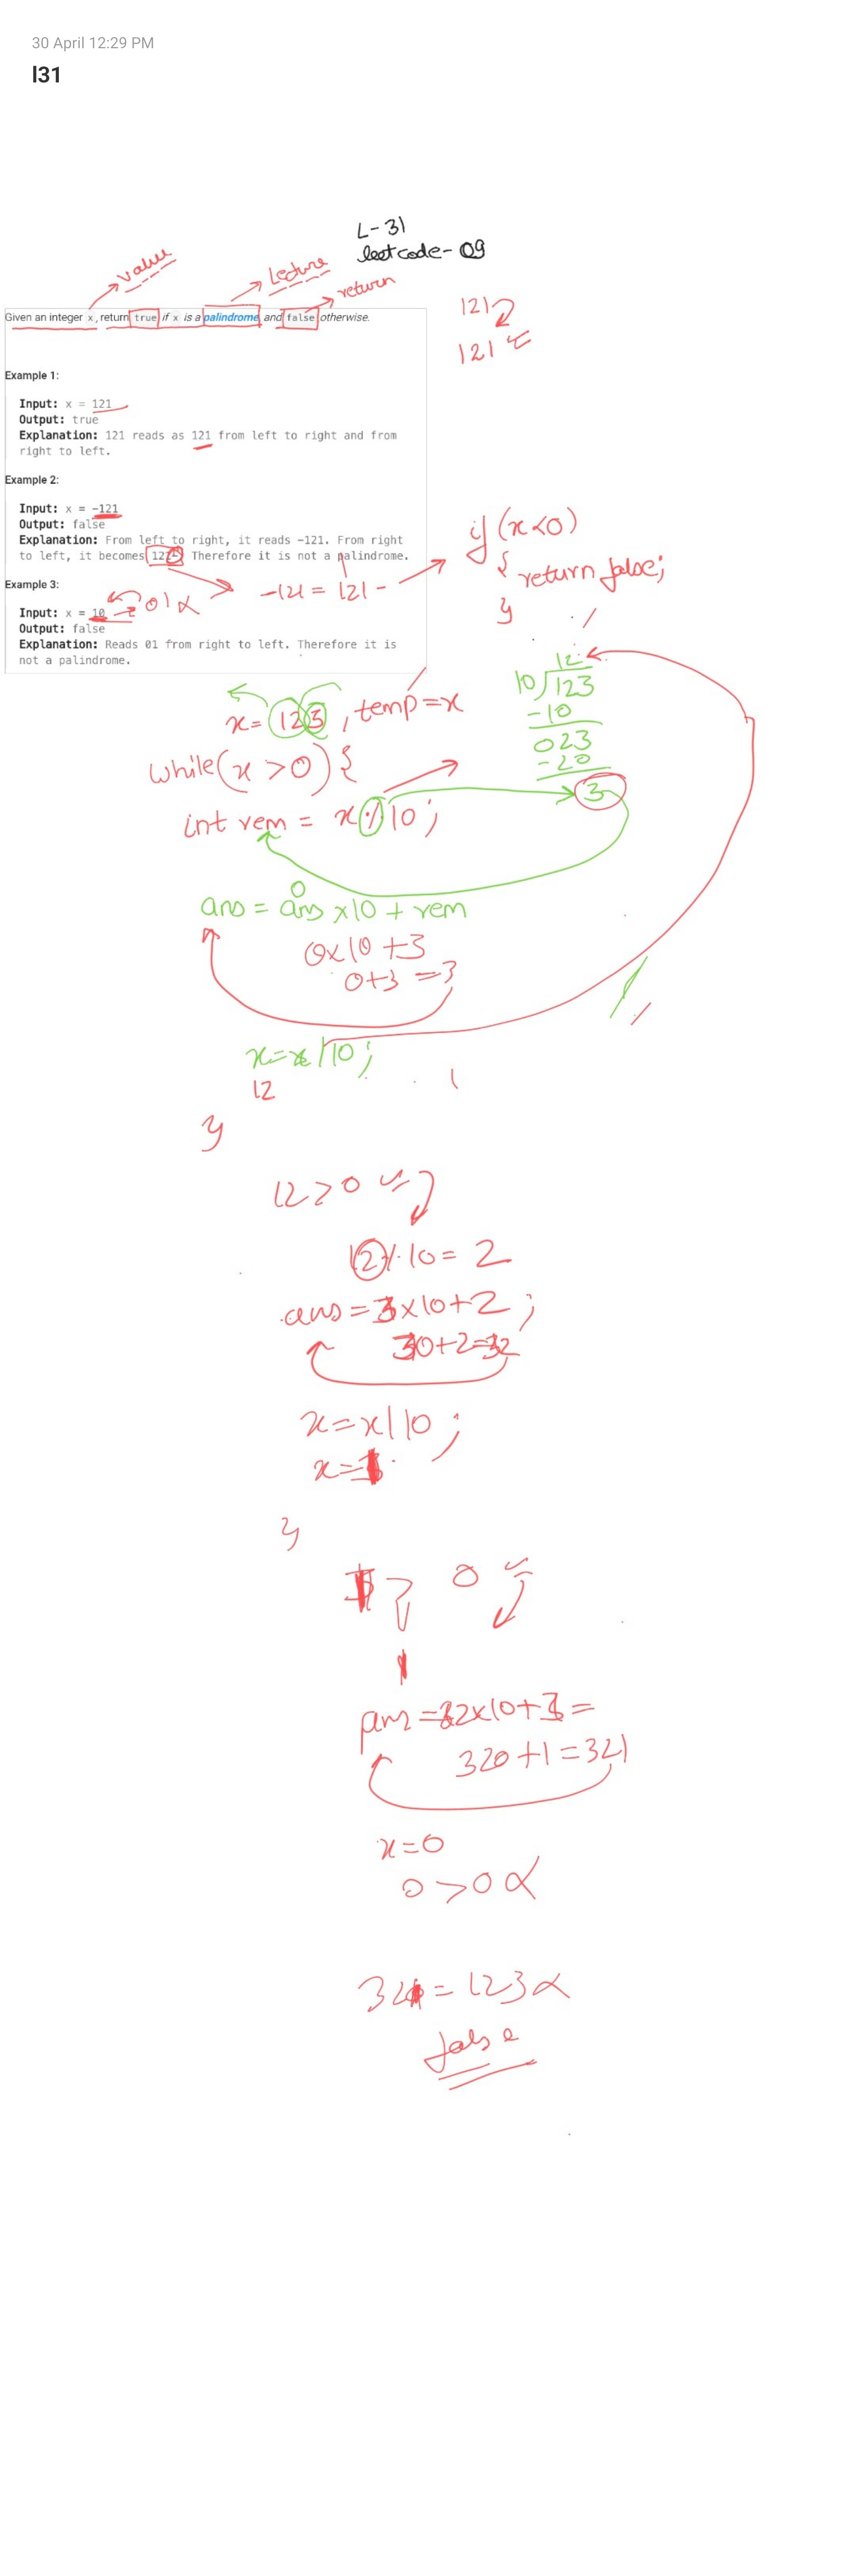 30 April 12:29 PM
l31
L-31
leetcode-09
value
Lecture
return
Given an integer x, return true if x is a palindrome, and false otherwise.
121
121
Example 1:
Input: x = 121
Output: true
Explanation: 121 reads as 121 from left to right and from
right to left.
Example 2:
Input: x = -121
Output: false
Explanation: From left to right, it reads -121. From right
to left, it becomes 121-. Therefore it is not a palindrome.
-121 = 121-
if (x<0)
{
return false;
}
Example 3:
Input: x = 10
01
Output: false
Explanation: Reads 01 from right to left. Therefore it is
not a palindrome.
12
10)123
-10
023
-20
3
x = 123, temp=x
while(x > 0) {
int rem = x % 10;
0
ans = ans x10 + rem
0x10 +3
0+3 =3
x=x/10;
12
}
12>0
12%10= 2
ans=3x10+2;
30+2=32
x=x/10;
x=1
}
1 > 0
1
ans=32x10+1=
320+1=321
x=0
0>0
321=123
false